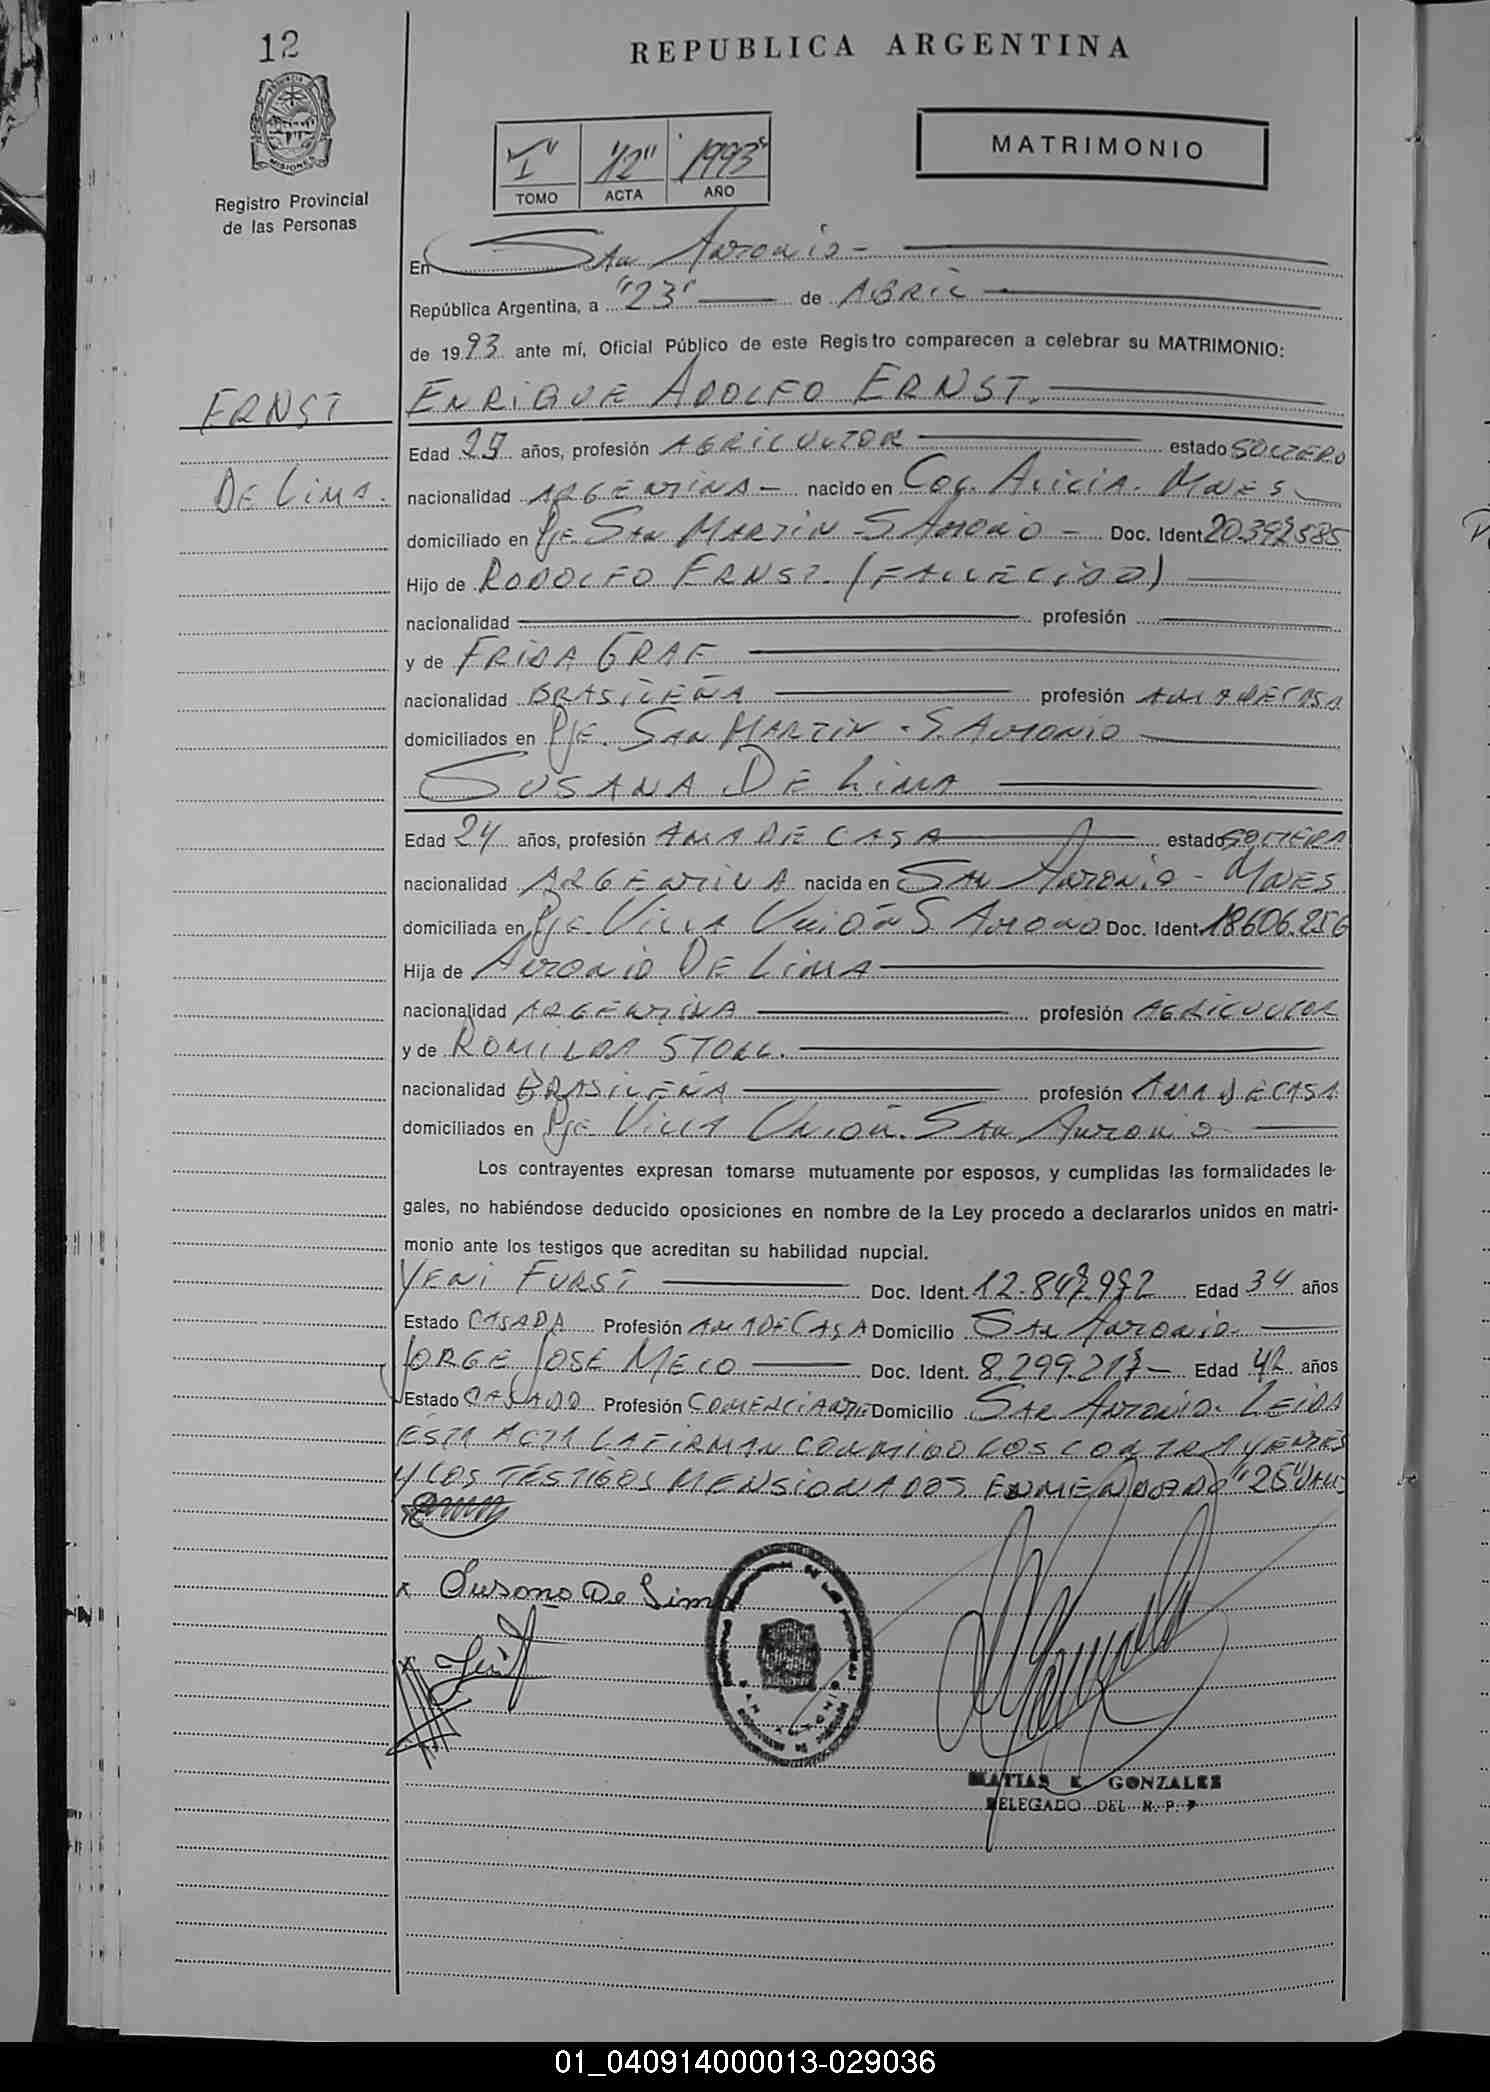 12
REPUBLICA ARGENTINA
MISIONES
Registro Provincial
de las Personas
"I" "12" 1993
TOMO ACTA AÑO
MATRIMONIO
En San Antonio -
República Argentina, a "23" de ABRIL
de 1993 ante mí, Oficial Público de este Registro comparecen a celebrar su MATRIMONIO:
ERNST
DE LIMA.
ENRIQUE ADOLFO ERNST.
Edad años, profesión AGRICULTOR estado SOLTERO
nacionalidad ARGENTINA - nacido en Col. ALICIA. MNES
domiciliado en Pje. SAN MARTIN - S ANTONIO - Doc. Ident 20.392.585
Hijo de RODOLFO ERNST. (FALLECIDO)
nacionalidad profesión
y de FRIDA GRAF
nacionalidad BRASILEÑA profesión AMA DE CASA
domiciliados en Pje. SAN MARTIN - S. ANTONIO
SUSANA DE LIMA
Edad 24 años, profesión AMA DE CASA estado SOLTERA
nacionalidad ARGENTINA nacida en SAN ANTONIO - MNES
domiciliada en Pje. VILLA UNIÓN S. ANTONIO Doc. Ident. 18.606.256
Hija de ANTONIO DE LIMA
nacionalidad ARGENTINA profesión AGRICULTOR
y de ROMILDA STOLL.
nacionalidad BRASILEÑA profesión AMA DE CASA
domiciliados en Pje. VILLA UNIÓN. SAN ANTONIO
Los contrayentes expresan tomarse mutuamente por esposos, y cumplidas las formalidades le-
gales, no habiéndose deducido oposiciones en nombre de la Ley procedo a declararlos unidos en matri-
monio ante los testigos que acreditan su habilidad nupcial.
YENI FURST Doc. Ident. 12.847.972 Edad 34 años
Estado CASADA Profesión AMA DE CASA Domicilio SAN ANTONIO
JORGE JOSE MELO Doc. Ident. 8.299.217 - Edad 42 años
Estado CASADO Profesión COMERCIANTE Domicilio SAN ANTONIO. LEIDA
ESTA ACTA LA FIRMAN CONMIGO LOS CONTRAYENTES
Y LOS TESTIGOS MENSIONADOS ENMENDADO "25" VALE
x Susana De Lima
SAN ANTONIO
MATIAS E. GONZALEZ
DELEGADO DEL R. P. P
01_040914000013-029036